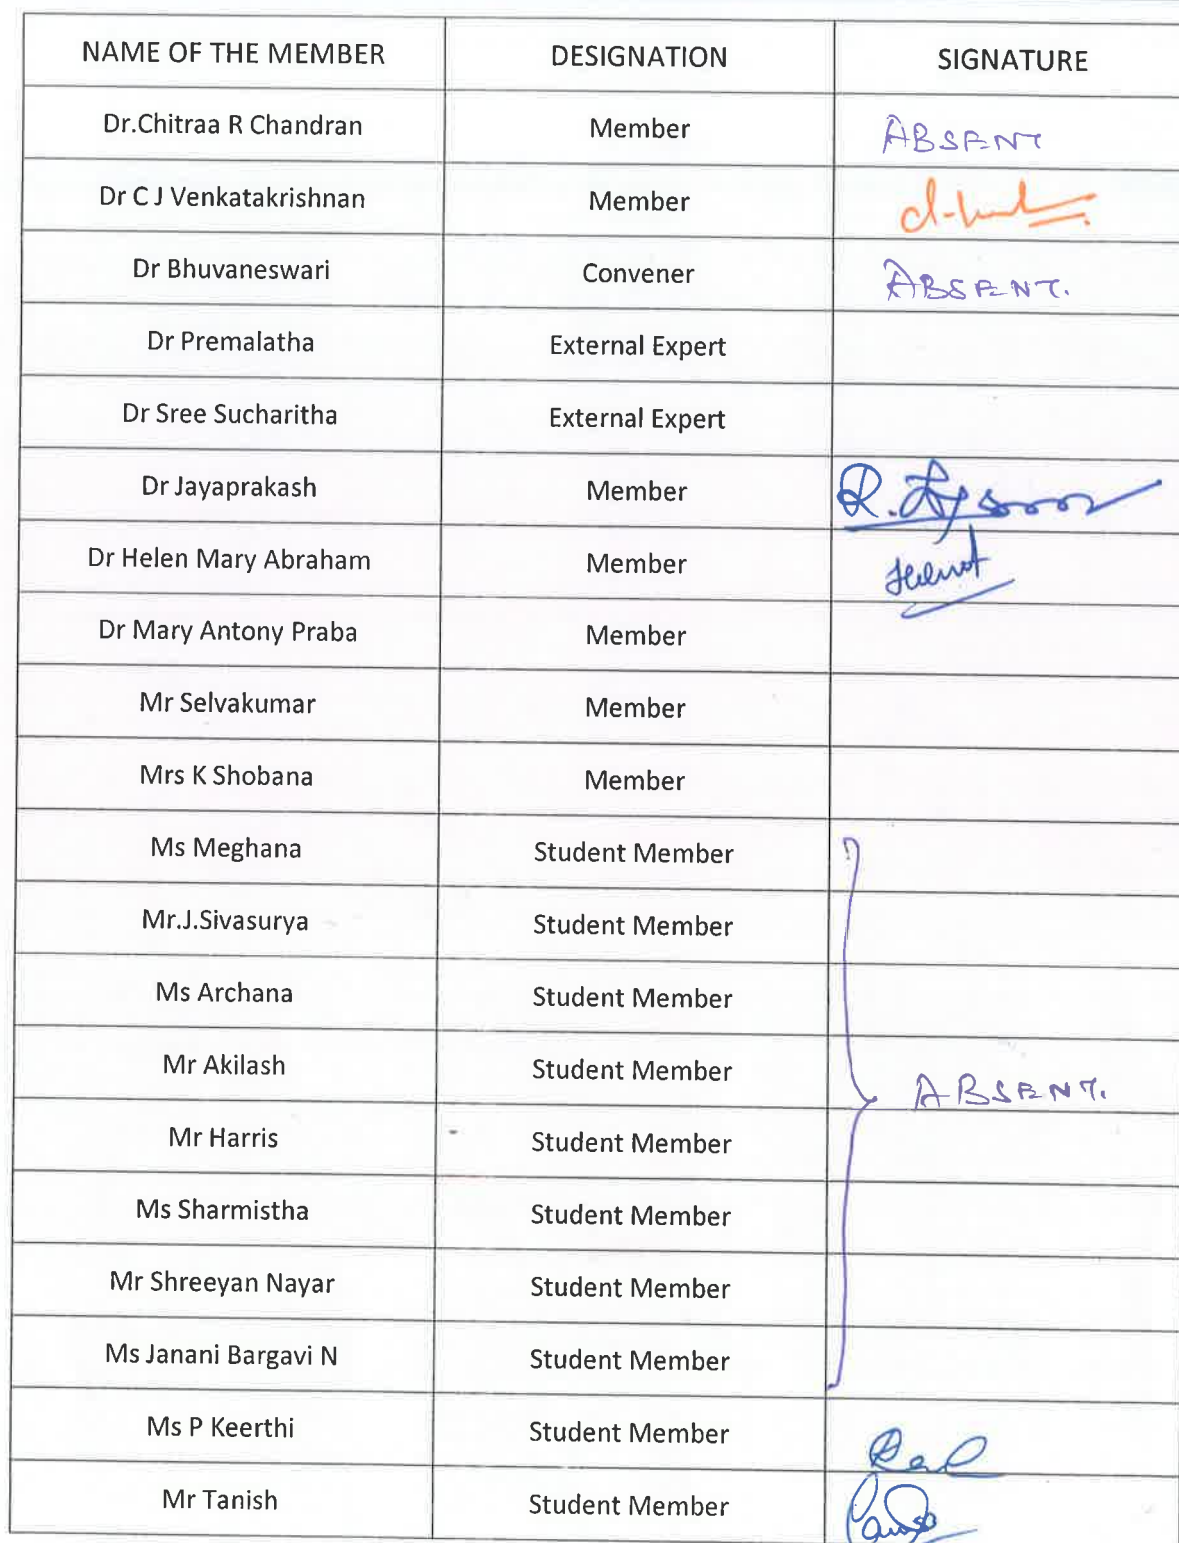 NAME OF THE MEMBER DESIGNATION SIGNATURE
Dr.Chitraa R Chandran Member ABSENT
Dr C J Venkatakrishnan Member
Dr Bhuvaneswari Convener ABSENT.
Dr Premalatha External Expert
Dr Sree Sucharitha External Expert
Dr Jayaprakash Member
Dr Helen Mary Abraham Member
Dr Mary Antony Praba Member
Mr Selvakumar Member
Mrs K Shobana Member
Ms Meghana Student Member
Mr.J.Sivasurya Student Member
Ms Archana Student Member
Mr Akilash Student Member ABSENT.
Mr Harris Student Member
Ms Sharmistha Student Member
Mr Shreeyan Nayar Student Member
Ms Janani Bargavi N Student Member
Ms P Keerthi Student Member
Mr Tanish Student Member